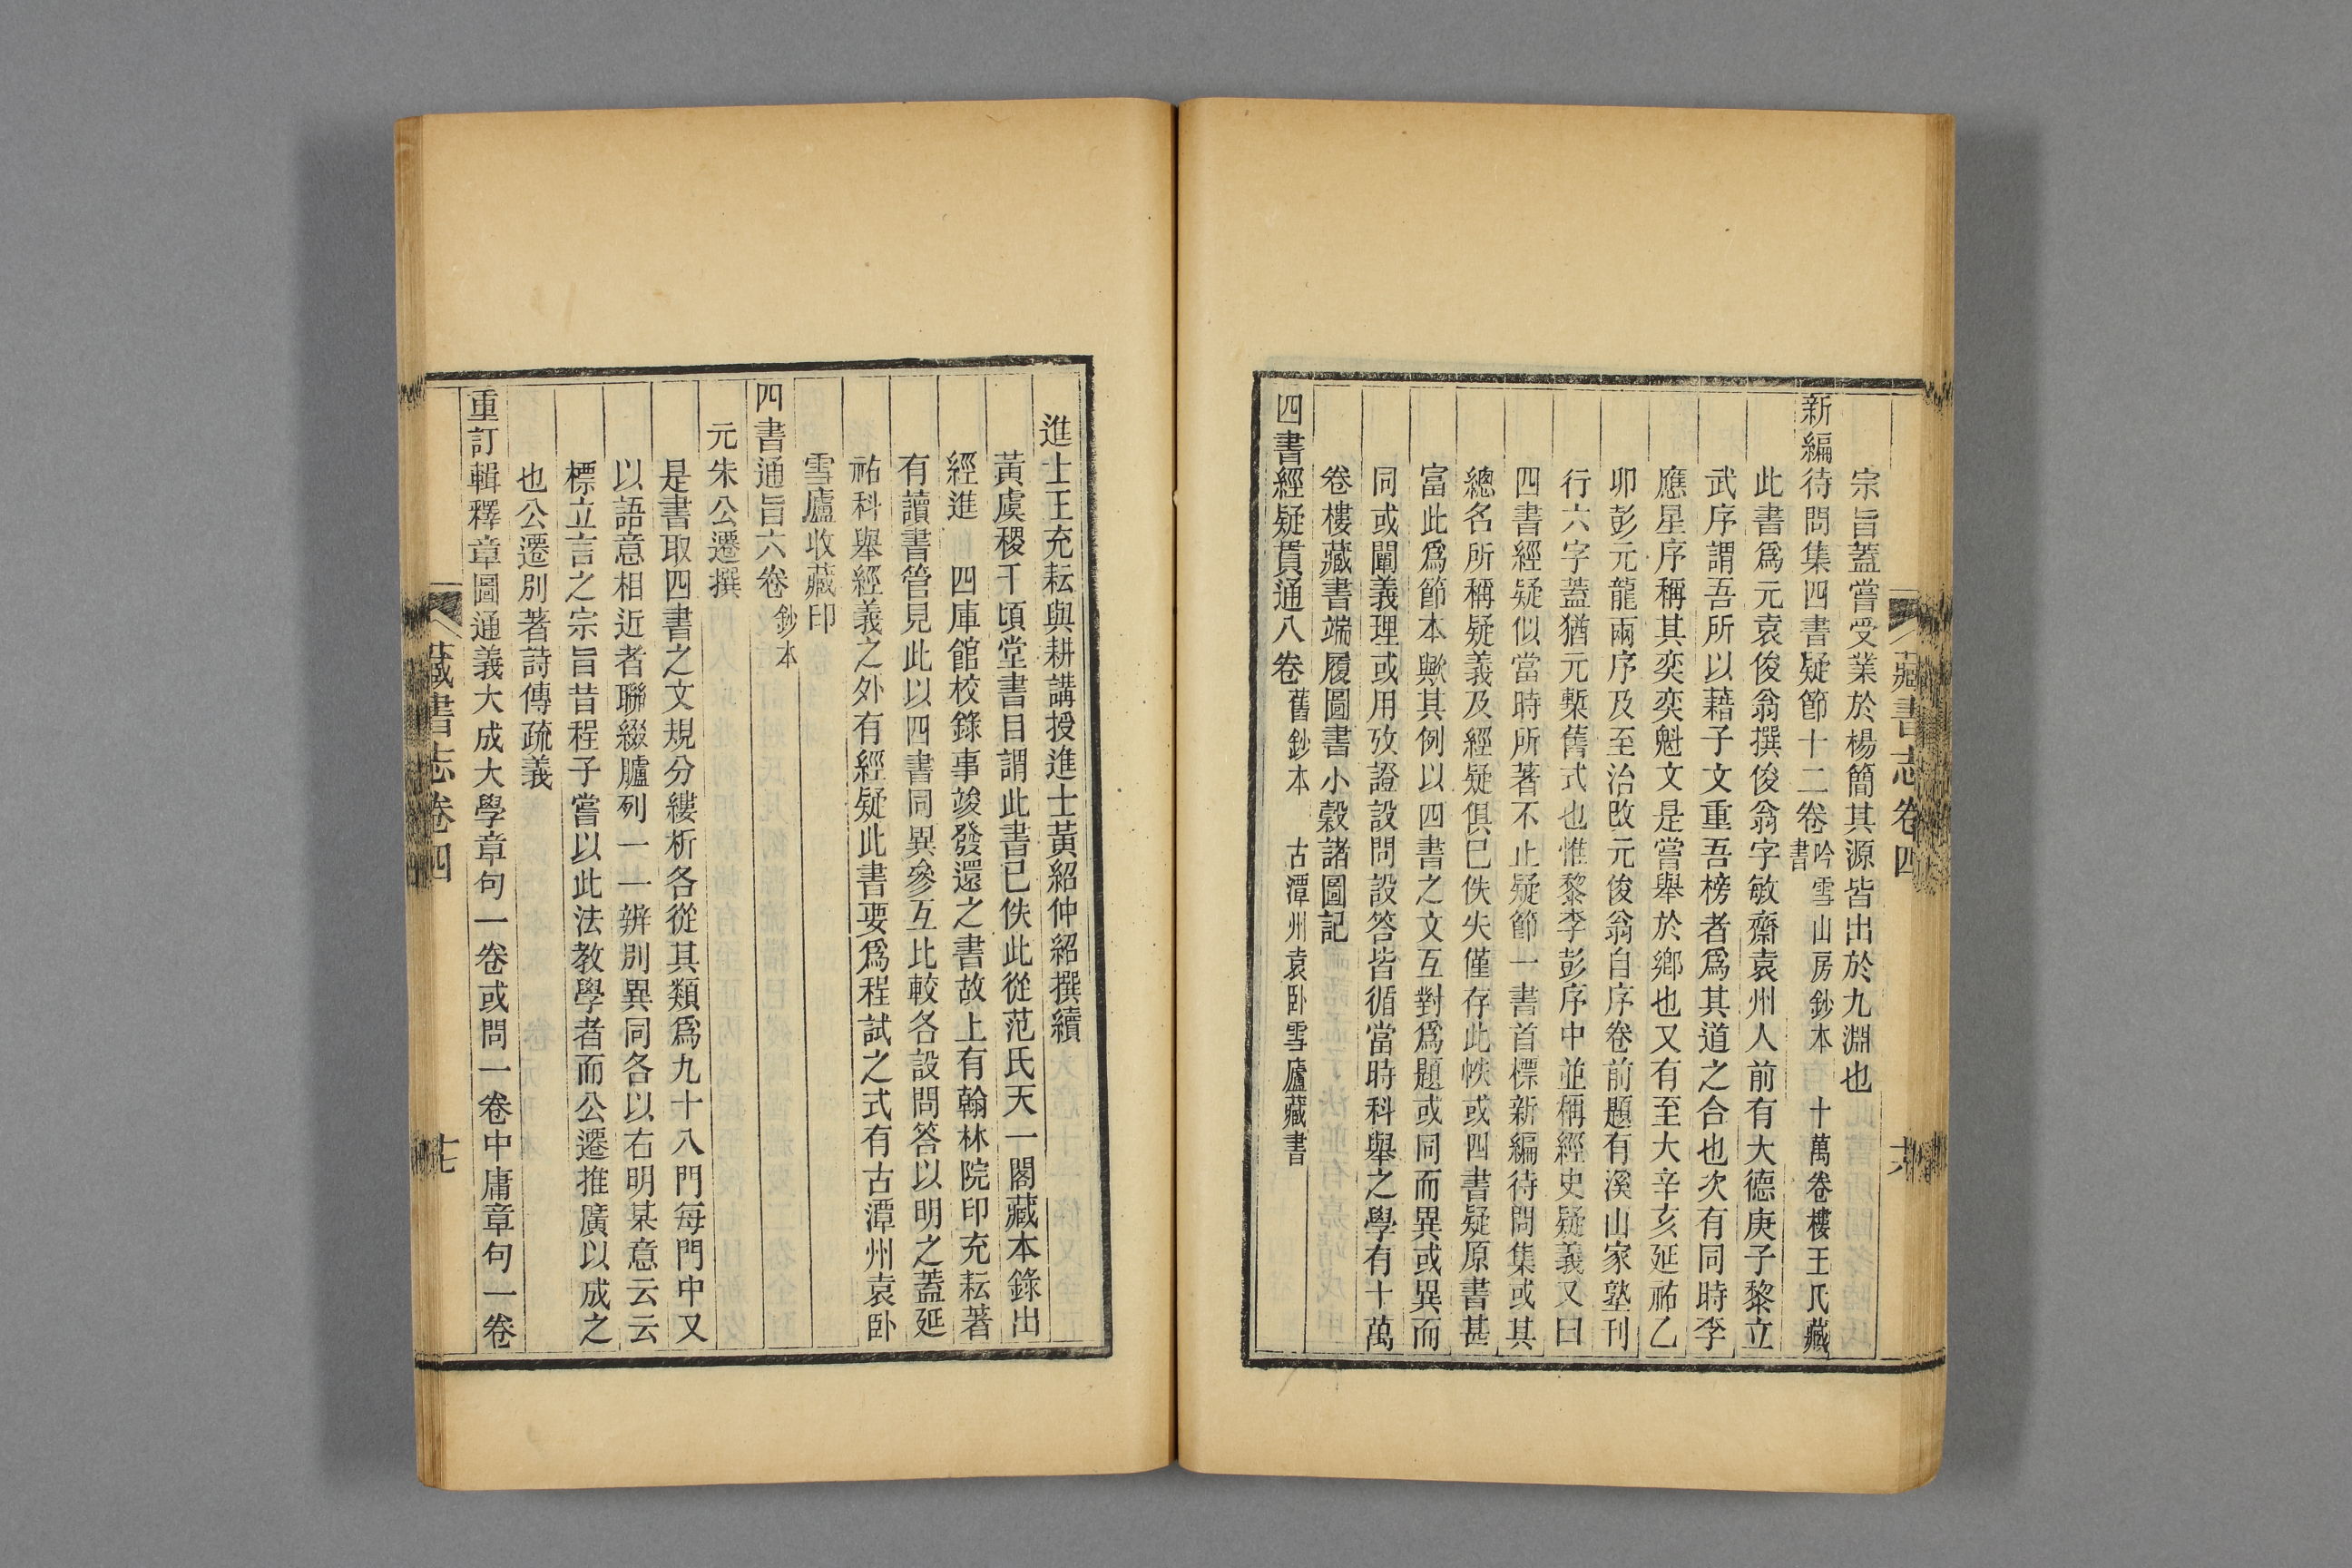 藏書志卷四
宗旨蓋嘗受業於楊簡其源皆出於九淵也
新編待問集四書疑節十二卷 吟雪山房鈔本 十萬卷樓王氏藏
書
此書爲元袁俊翁撰俊翁字敏齋袁州人前有大德庚子黎立
武序謂吾所以藉子文重吾榜者爲其道之合也次有同時李
應星序稱其奕奕魁文是嘗舉於鄉也又有至大辛亥延祐乙
卯彭元龍兩序及至治改元俊翁自序卷前題有溪山家塾刊
行六字蓋猶元槧舊式也惟黎李彭序中並稱經史疑義又曰
四書經疑似當時所著不止疑節一書首標新編待問集或其
總名所稱疑義及經疑俱已佚失僅存此帙或四書疑原書甚
富此爲節本歟其例以四書之文互對爲題或同而異或異而
同或闡義理或用攷證設問設答皆循當時科舉之學有十萬
卷樓藏書端履圖書小穀諸圖記
四書經疑貫通八卷 舊鈔本 古潭州袁卧雪廬藏書
進士王充耘與耕講授進士黃紹仲紹撰續
黃虞稷千頃堂書目謂此書已佚此從范氏天一閣藏本錄出
經進 四庫館校錄事竣發還之書故上有翰林院印充耘著
有讀書管見此以四書同異參互比較各設問答以明之蓋延
祐科舉經義之外有經疑此書要爲程試之式有古潭州袁卧
雪廬收藏印
四書通旨六卷 鈔本
元朱公遷撰
是書取四書之文規分縷析各從其類爲九十八門每門中又
以語意相近者聯綴臚列一一辨別異同各以右明某意云云
標立言之宗旨昔程子嘗以此法教學者而公遷推廣以成之
也公遷別著詩傳疏義
重訂輯釋章圖通義大成大學章句一卷或問一卷中庸章句一卷
藏書志卷四